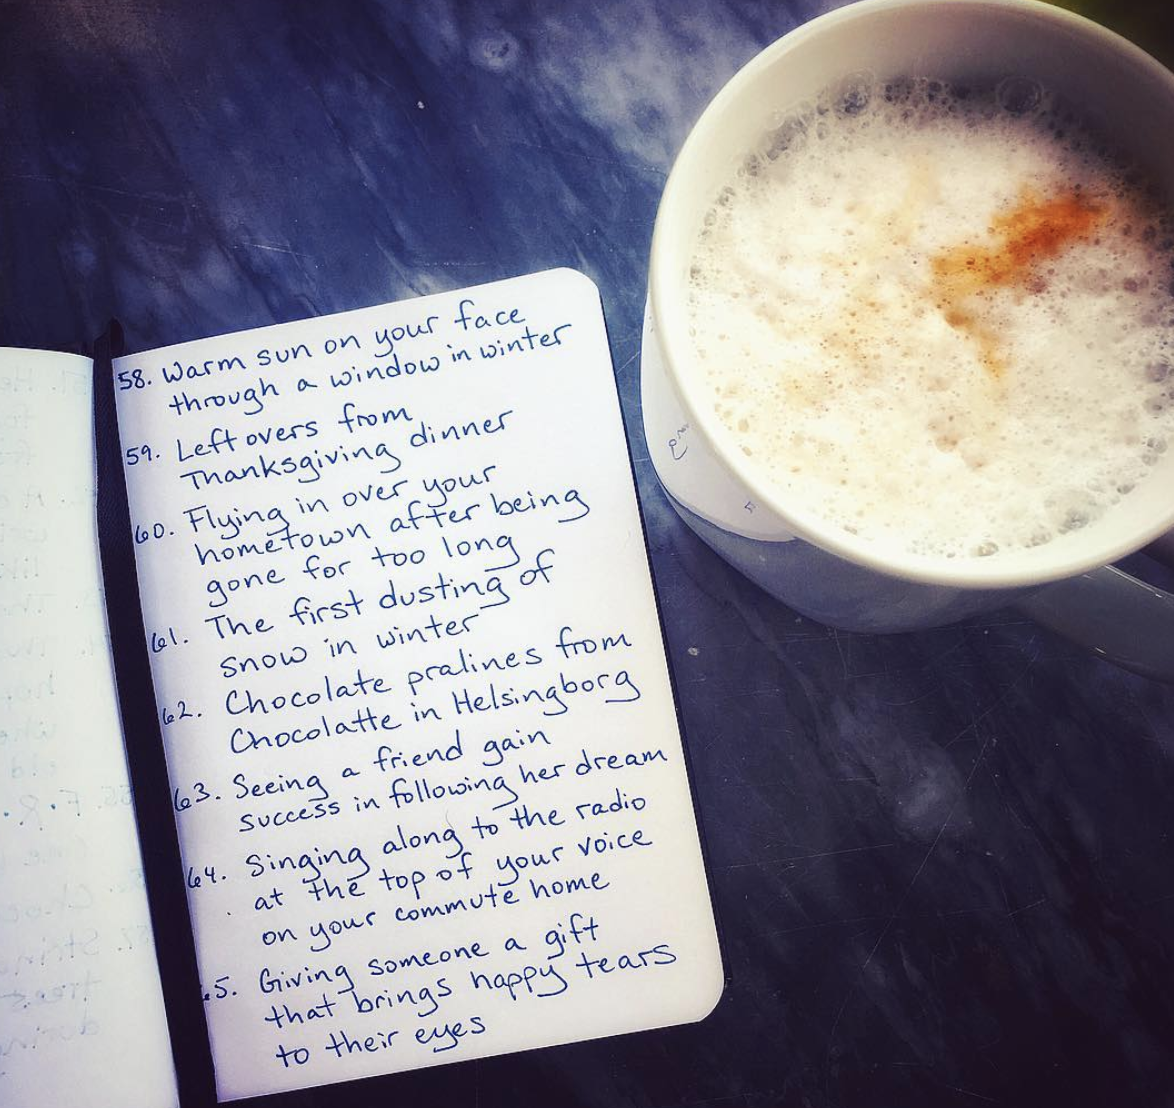 58. Warm sun on your face
through a window in winter
59. Leftovers from
Thanksgiving dinner
60. Flying in over your
hometown after being
gone for too long
61. The first dusting of
snow in winter
62. Chocolate pralines from
Chocolatte in Helsingborg
63. Seeing a friend gain
success in following her dream
64. Singing along to the radio
at the top of your voice
on your commute home
65. Giving someone a gift
that brings happy tears
to their eyes